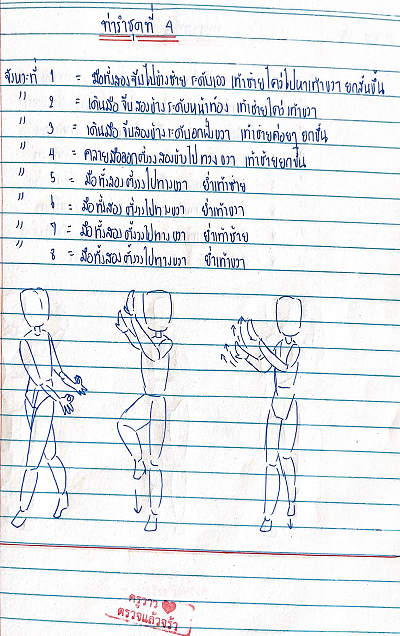 ท่ารำชุดที่ 4
จังหวะที่ 1 = มือทั้งสองจีบไปข้างซ้าย ระดับเอว เท้าซ้ายไขว้ไปหาเท้าขวา ยกส้นขึ้น
" 2 = เดินมือ จีบสองข้างระดับหน้าท้อง เท้าซ้ายไขว้เท้าขวา
" 3 = เดินมือ จีบสองข้างระดับอกฝั่งขวา เท้าซ้ายค่อยๆ ยกขึ้น
" 4 = คลายมือออกตั้งวงสองข้างไปทางขวา เท้าซ้ายยกขึ้น
" 5 = มือทั้งสองตั้งวงไปทางขวา ย่ำเท้าซ้าย
" 6 = มือทั้งสองตั้งวงไปทางขวา ย่ำเท้าขวา
" 7 = มือทั้งสองตั้งวงไปทางขวา ย่ำเท้าซ้าย
" 8 = มือทั้งสองตั้งวงไปทางขวา ย่ำเท้าขวา
ครูวาว
ตรวจแล้วจร้า